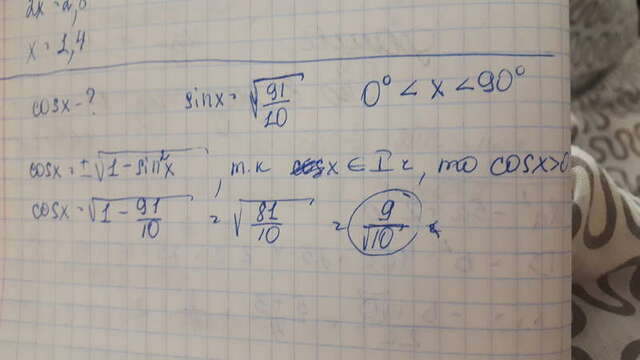 2x = 2,8
x = 1,4
cosx - ? sinx = √(91/10) 0° < x < 90°
cosx = ±√(1 - sin²x), т.к x ∈ I ч, то cosx>0
cosx = √(1 - 91/10) = √(81/10) = 9/√10